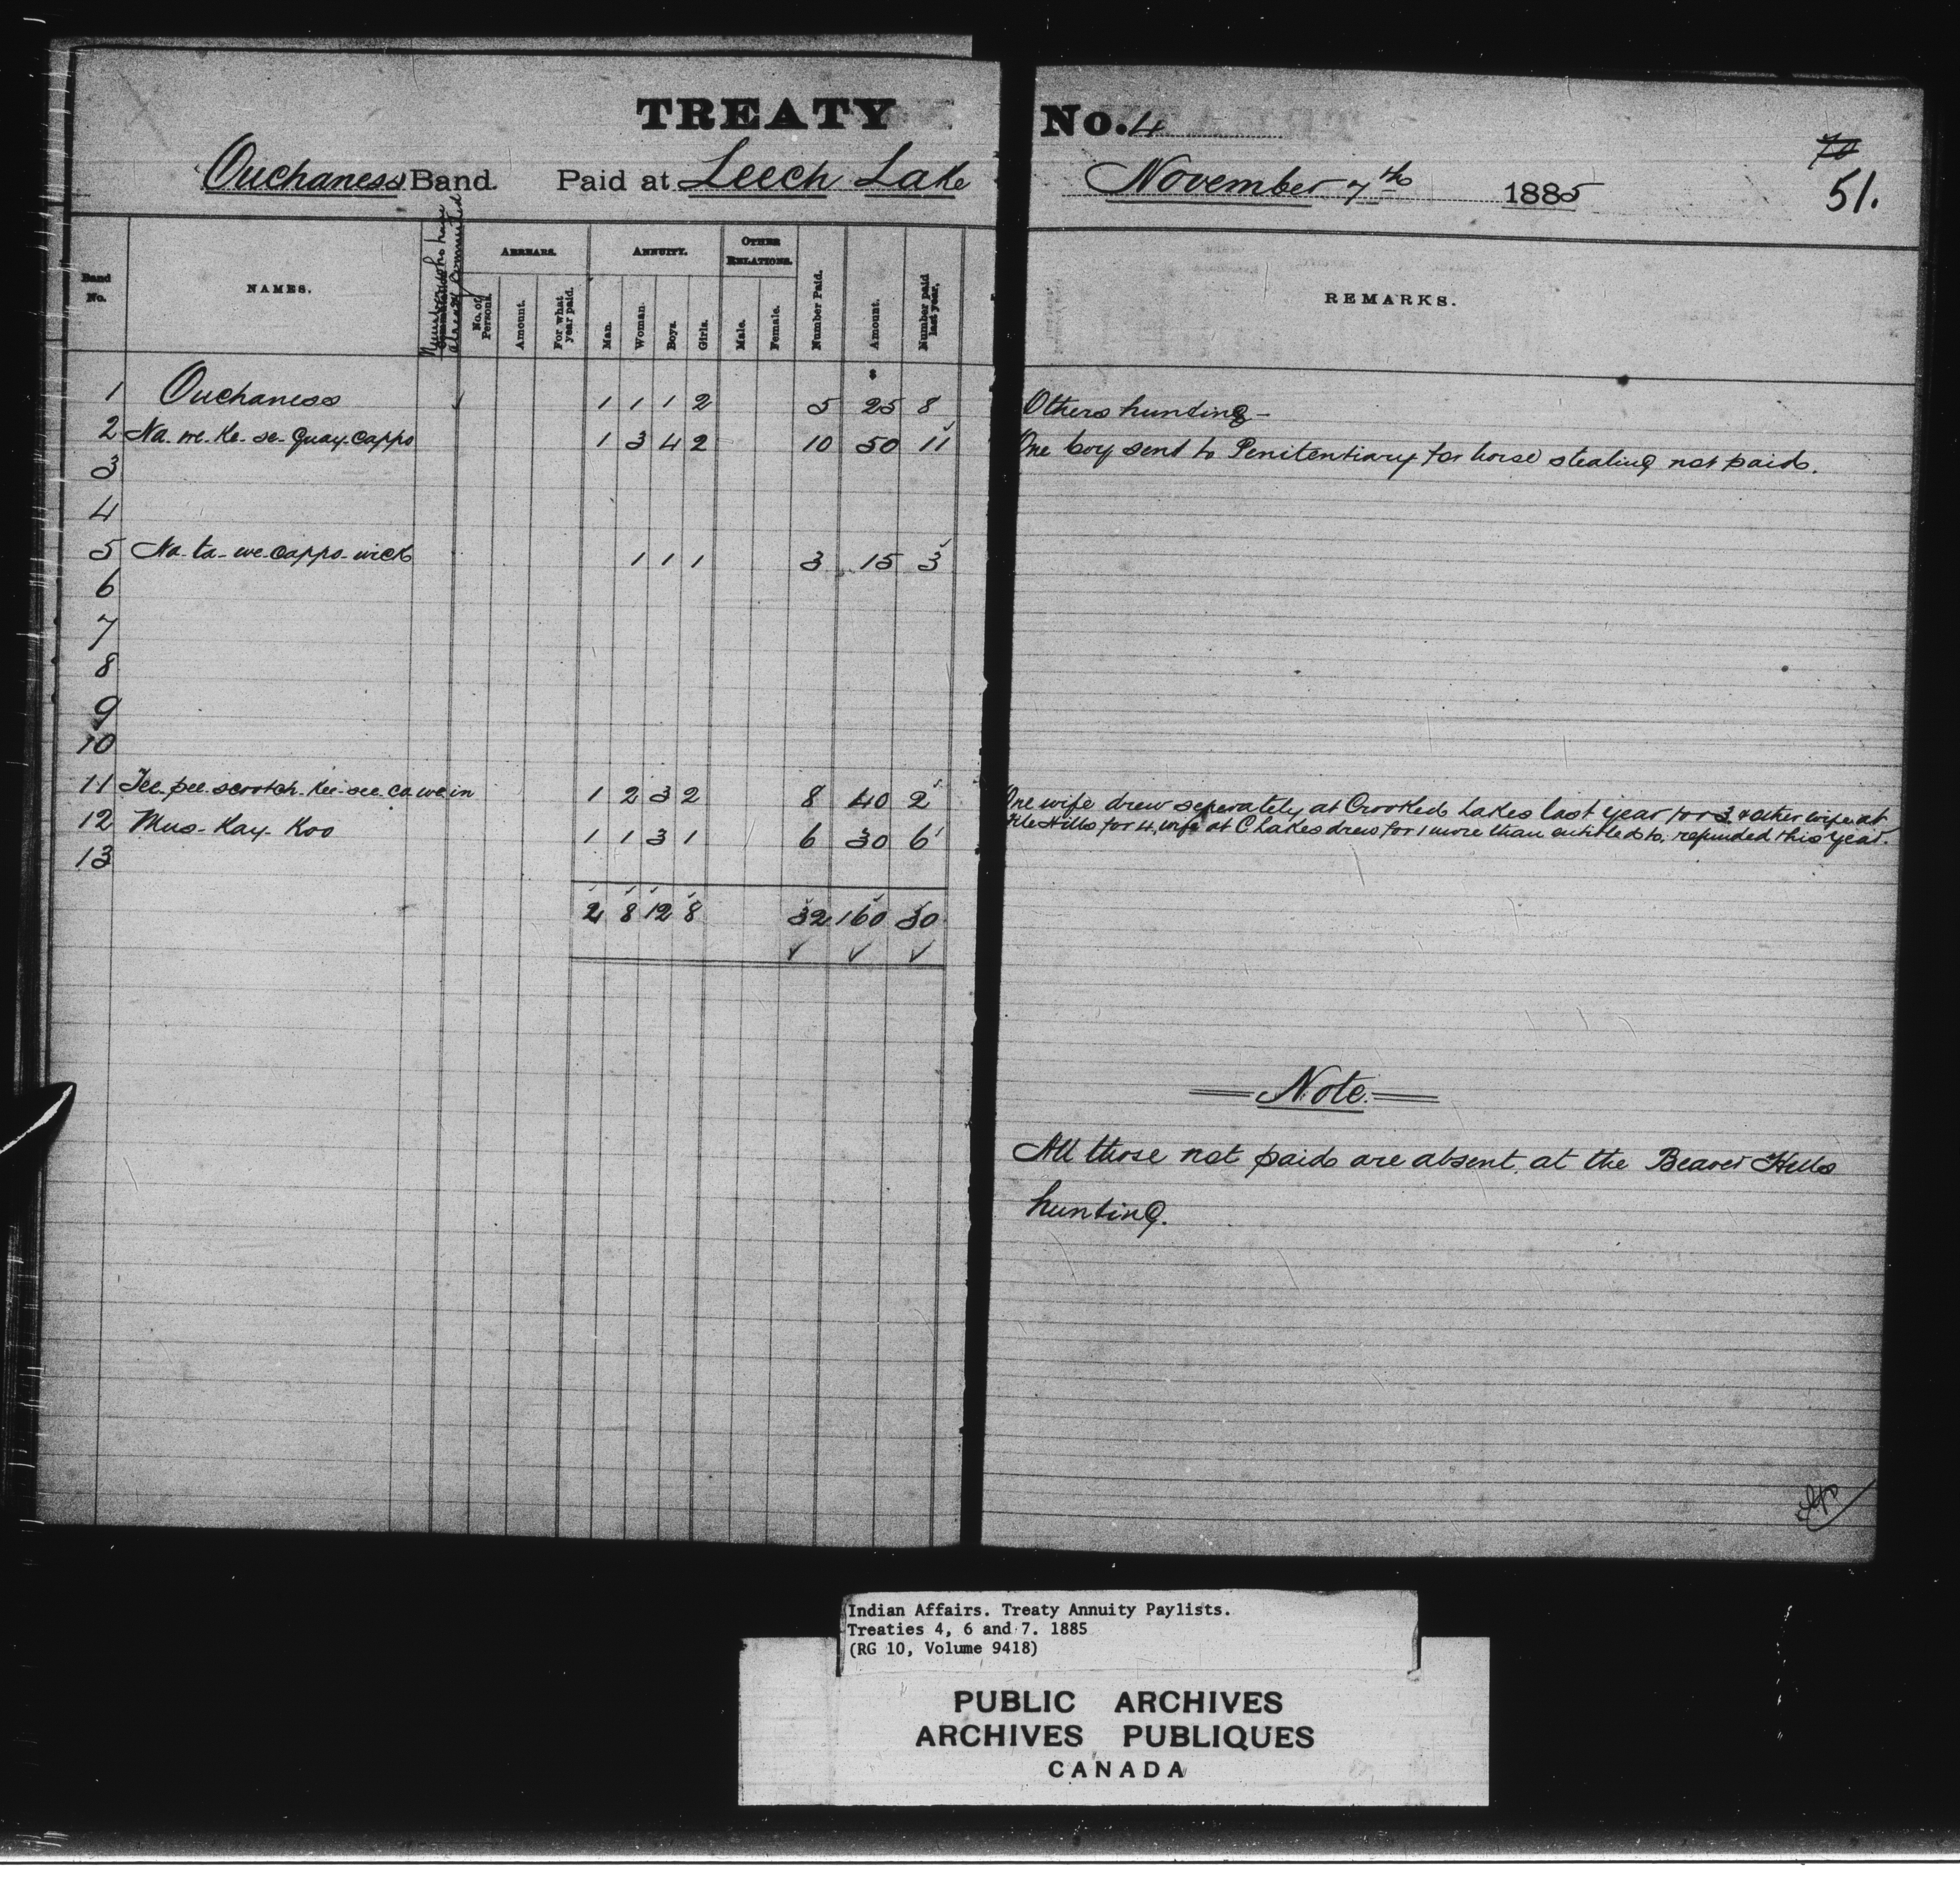 TREATY No. 4
70
51.
Ouchaness Band. Paid at Leech Lake November 7th 1885
Band No. NAMES. Numbers who have already Commuted ARREARS. No. of Persons. Amount. For what year paid. ANNUITY. Man. Woman. Boys. Girls. OTHER RELATIONS. Male. Female. Number Paid. Amount. Number paid last year. REMARKS.
$
1 Ouchaness 1 1 1 2 5 25 8 Others hunting -
2 Na-we-Ke-se-Quay-Cappo 1 3 4 2 10 50 11 One boy sent to Penitentiary for horse stealing not paid.
3
4
5 Na-ta-we-Cappo-wick 1 1 1 3 15 3
6
7
8
9
10
11 Tee-pee-scootch-Kee-see-Cawein 1 2 3 2 8 40 2 One wife drew seperately at Crooked Lakes last year for 3 & other wife at
File Hills for 4, wife at C Lakes drew for 1 more than entitled to, refunded this year.
12 Mus-Kay-Koo 1 1 3 1 6 30 6
13
4 8 12 8 32 160 30
Note.
All those not paid are absent, at the Beaver Hills
hunting.
Indian Affairs. Treaty Annuity Paylists.
Treaties 4, 6 and 7. 1885
(RG 10, Volume 9418)
PUBLIC ARCHIVES
ARCHIVES PUBLIQUES
CANADA